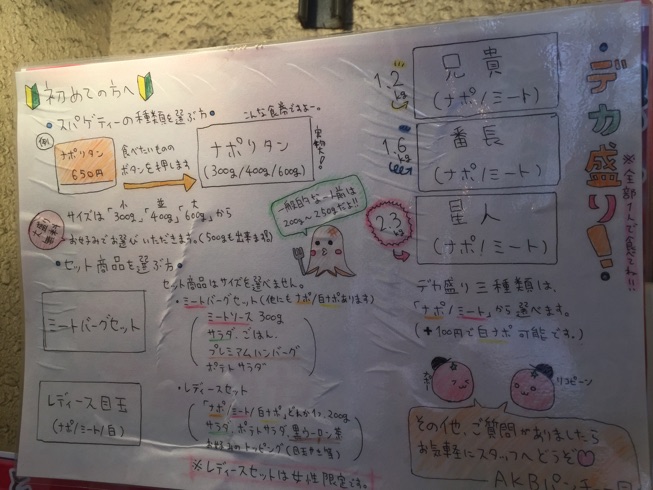 初めての方へ
・スパゲティーの種類を選ぶ方・
こんな食券ですよー。
例
ナポリタン
650円
食べたいもの
ボタンを押します
ナポリタン
(300g/400g/600g)
実物大!
小 並 大
サイズは「300g」「400g」「600g」から
お好みでお選びいただきます。(500gも出来ます)
一般的な一人前は
200g〜250gだよ!!
・セット商品を選ぶ方・
セット商品はサイズを選べません。
ミートバーグセット
・ミートバーグセット(他にもナポ/白ナポあります)
ミートソース 300g
サラダ、ごはん、
プレミアムハンバーグ
ポテトサラダ
レディース目玉
(ナポ/ミート/白)
・レディースセット
「ナポ/ミート/白ナポ」どれか1つ、200g
サラダ、ポテトサラダ、黒ウーロン茶
お好みのトッピング
※レディースセットは女性限定です。
・デカ盛り!・
※全部1人で食べてね!!
1.2kg
兄貴
(ナポ/ミート)
1.6kg
番長
(ナポ/ミート)
2.3kg
星人
(ナポ/ミート)
デカ盛り三種類は、
「ナポ/ミート」から選べます。
(+100円で白ナポ可能です。)
リコピーン
その他、ご質問がありましたら
お気軽にスタッフへどうぞ♡
AKBパンチョ